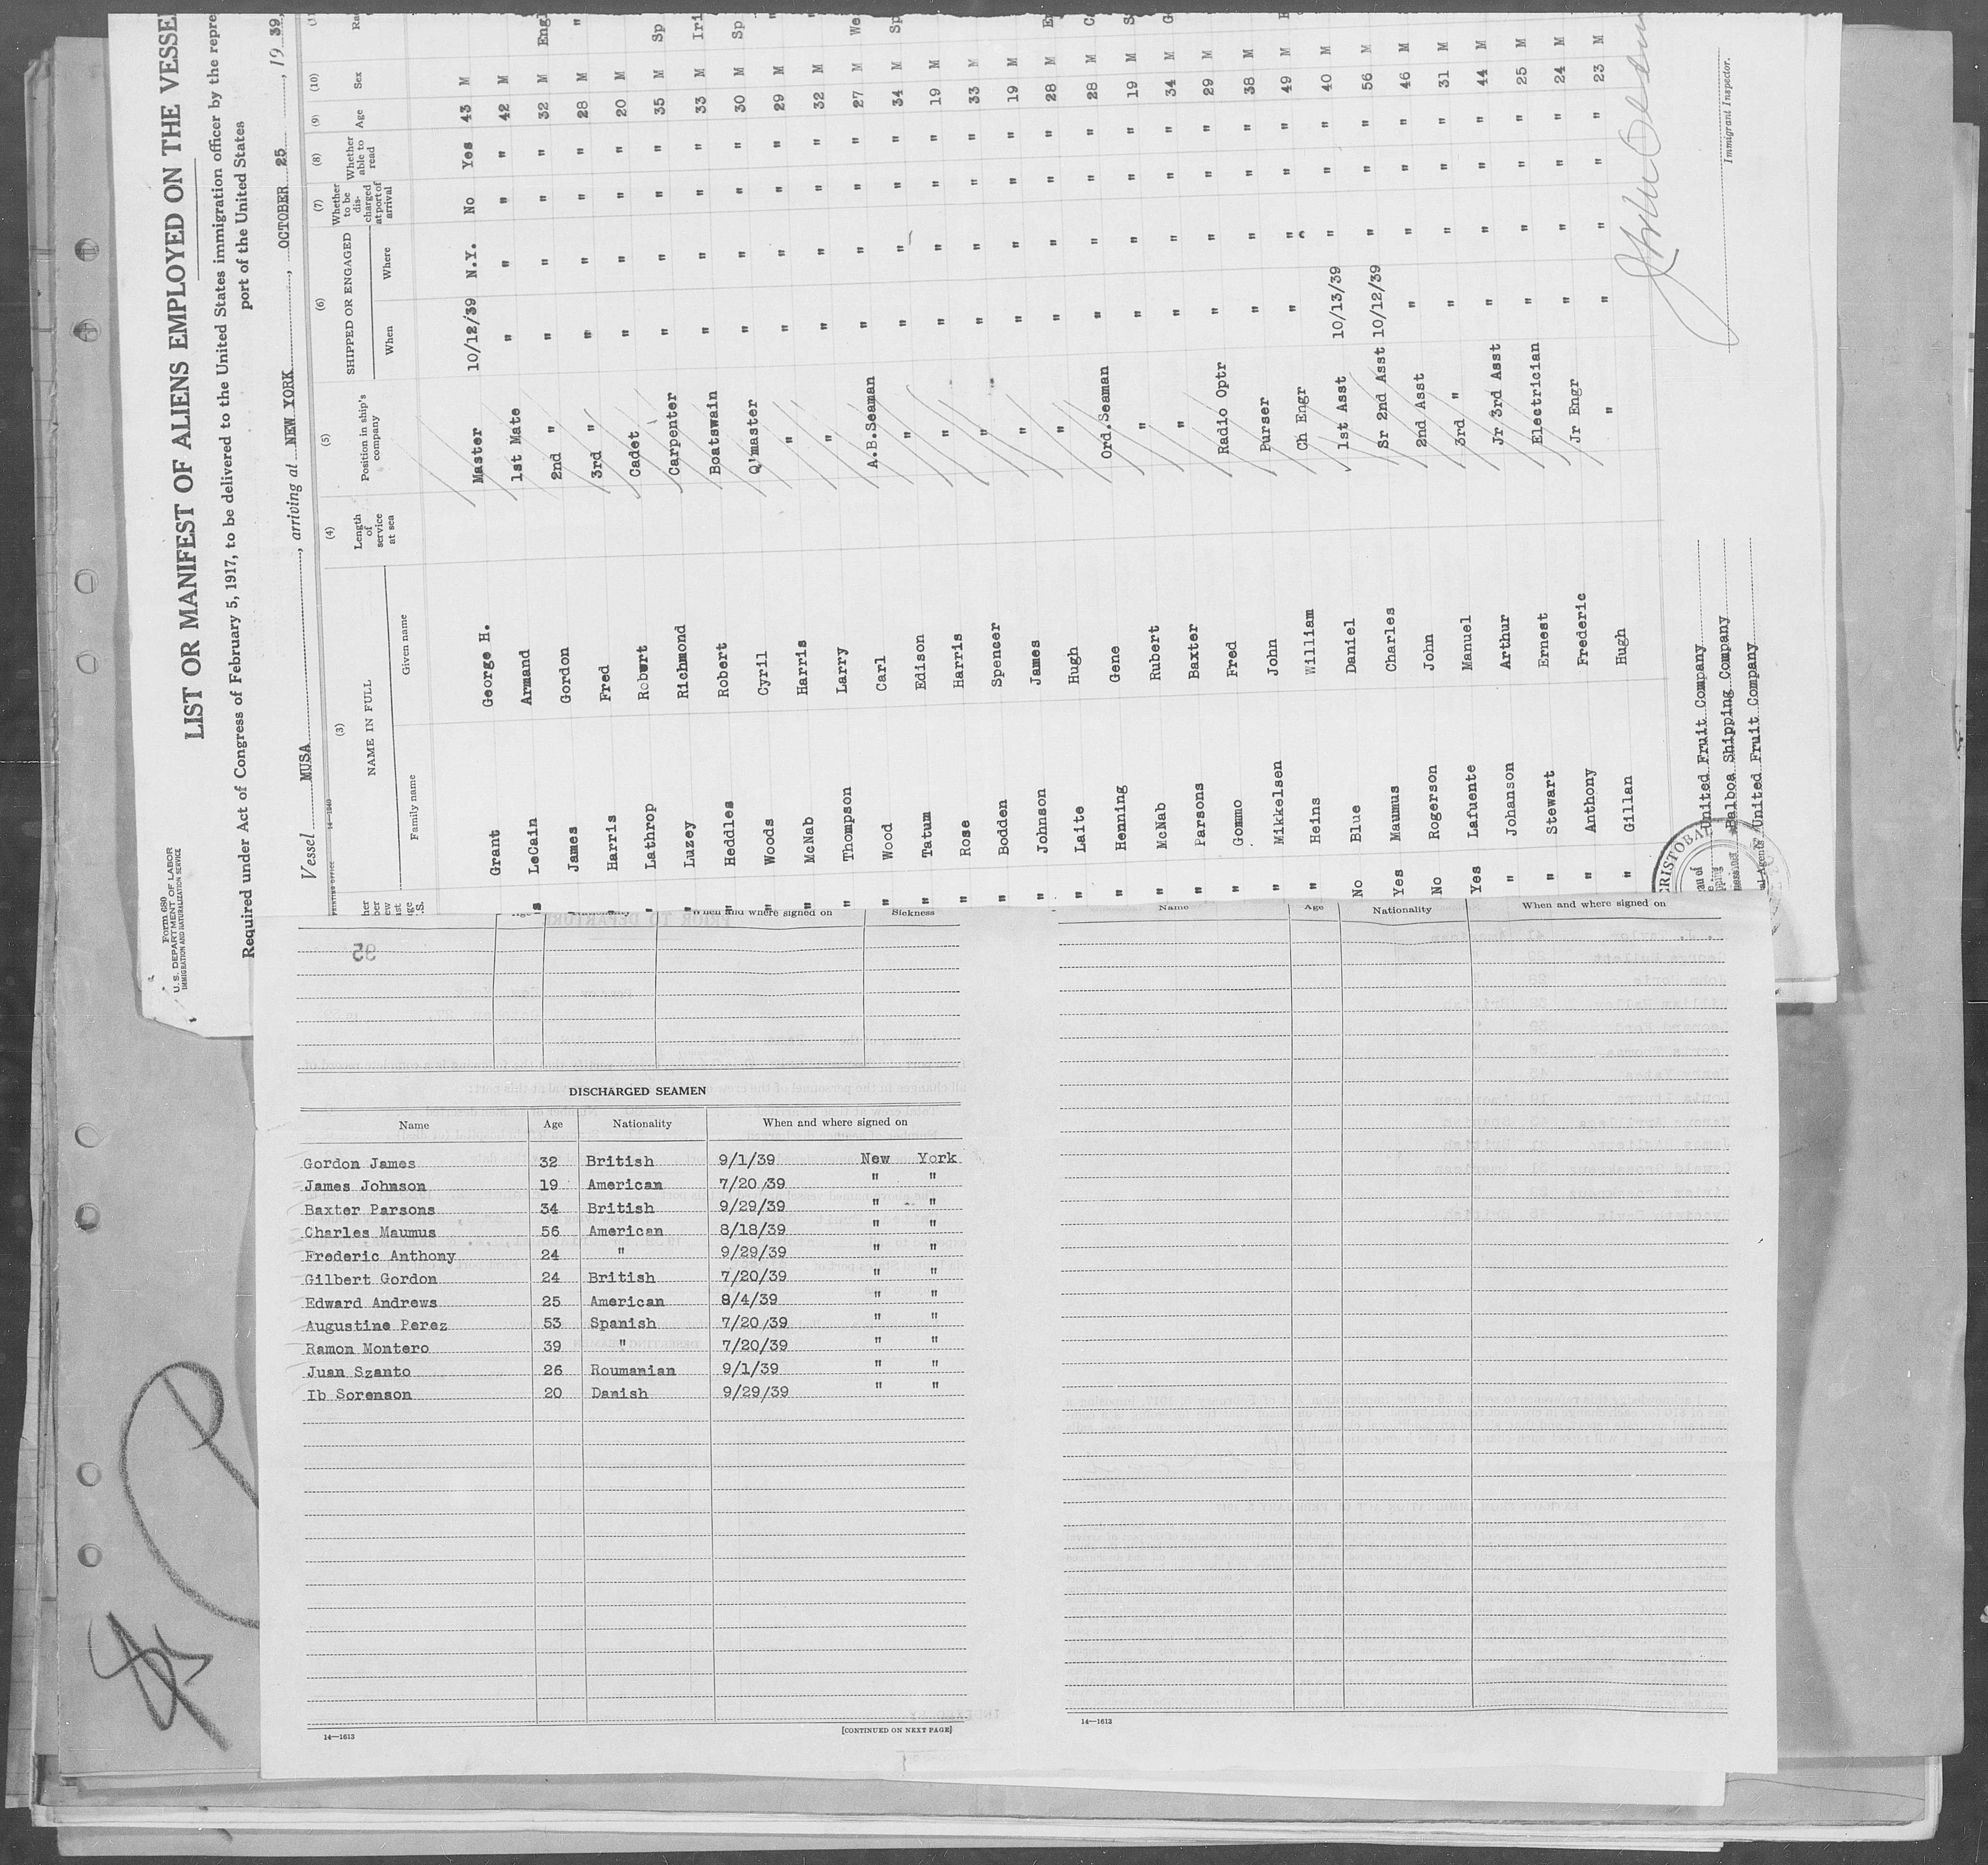 Form 680
U. S. DEPARTMENT OF LABOR
IMMIGRATION AND NATURALIZATION SERVICE
LIST OR MANIFEST OF ALIENS EMPLOYED ON THE VESSE
Required under Act of Congress of February 5, 1917, to be delivered to the United States immigration officer by the repre
port of the United States
Vessel MUSA, arriving at NEW YORK, OCTOBER 25, 19 39,
(3) (4) (5) (6) (7) (8) (9) (10)
NAME IN FULL Length of service at sea Position in ship's company SHIPPED OR ENGAGED Whether to be discharged at port of arrival Whether able to read Age Sex
Family name Given name When Where
Grant George H. Master 10/12/39 N.Y. No Yes 43 M
LeCain Armand 1st Mate " " " " 42 M
James Gordon 2nd " " " " " 32 M Engl
Harris Fred 3rd " " " " " 28 M "
Lathrop Roburt Cadet " " " " 20 M
" Luzey Richmond Carpenter " " " " 35 M Sp
" Heddles Robert Boatswain " " " " 33 M Iri
" Woods Cyril Q'master " " " " 30 M Sp
" McNab Harris " " " " " 29 M "
" Thompson Larry " " " " " 32 M "
" Wood Carl A.B.Seaman " " " " 27 M We
" Tatum Edison " " " " " 34 M Sp
" Rose Harris " " " " " 19 M
" Bodden Spencer " " " " " 33 M
" Johnson James " " " " " 19 M
" Laite Hugh " " " " " 28 M
" Henning Gene Ord.Seaman " " " " 28 M
" McNab Rubert " " " " " 19 M
" Parsons Baxter " " " " " 34 M
" Gommo Fred Radio Optr " " " " 29 M
" Mikkelsen John Purser " " " " 38 M
" Heins William Ch Engr " " " " 49 M
No Blue Daniel 1st Asst 10/13/39 " " " 40 M
Yes Maumus Charles Sr 2nd Asst 10/12/39 " " " 56 M
No Rogerson John 2nd Asst " " " " 46 M
Yes Lafuente Manuel 3rd " " " " " 31 M
" Johanson Arthur Jr 3rd Asst " " " " 44 M
" Stewart Ernest Electrician " " " " 25 M
" Anthony Frederic Jr Engr " " " " 24 M
" Gillan Hugh " " " " " 23 M
United Fruit Company
Balboa Shipping Company
United Fruit Company
Immigrant Inspector.
Age Nationality When and where signed on Sickness
DISCHARGED SEAMEN
Name Age Nationality When and where signed on
Gordon James 32 British 9/1/39 New York
James Johnson 19 American 7/20/39 " "
Baxter Parsons 34 British 9/29/39 " "
Charles Maumus 56 American 8/18/39 " "
Frederic Anthony 24 " 9/29/39 " "
Gilbert Gordon 24 British 7/20/39 " "
Edward Andrews 25 American 8/4/39 " "
Augustine Perez 53 Spanish 7/20/39 " "
Ramon Montero 39 " 7/20/39 " "
Juan Szanto 26 Roumanian 9/1/39 " "
Ib Sorenson 20 Danish 9/29/39 " "
14—1613
[CONTINUED ON NEXT PAGE]
Name Age Nationality When and where signed on
14—1613